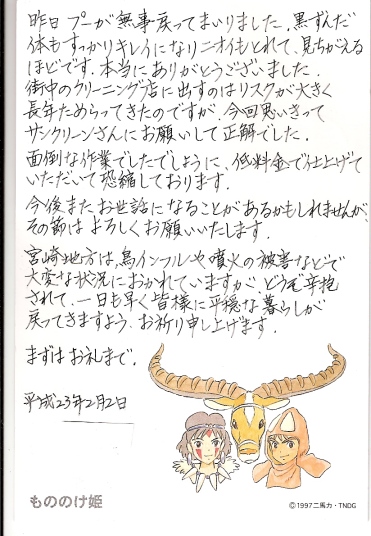 昨日プーが無事戻ってまいりました。黒ずんだ
体もすっかりキレイになりニオイもとれて、見ちがえる
ほどです。本当にありがとうございました。
街中のクリーニング店に出すのはリスクが大きく
長年ためらってきたのですが、今回思いきって
サンクリーンさんにお願いして正解でした。
面倒な作業でしたでしょうに、低料金で仕上げて
いただいて恐縮しております。
今後またお世話になることがあるかもしれませんが、
その節はよろしくお願いいたします。
宮崎地方は、鳥インフルや噴火の被害などで
大変な状況におかれていますが、どうぞ辛抱
されて、一日も早く皆様に平穏な暮らしが
戻ってきますよう、お祈り申し上げます。
まずはお礼まで。
平成23年2月2日
もののけ姫
©1997 二馬力・TNDG